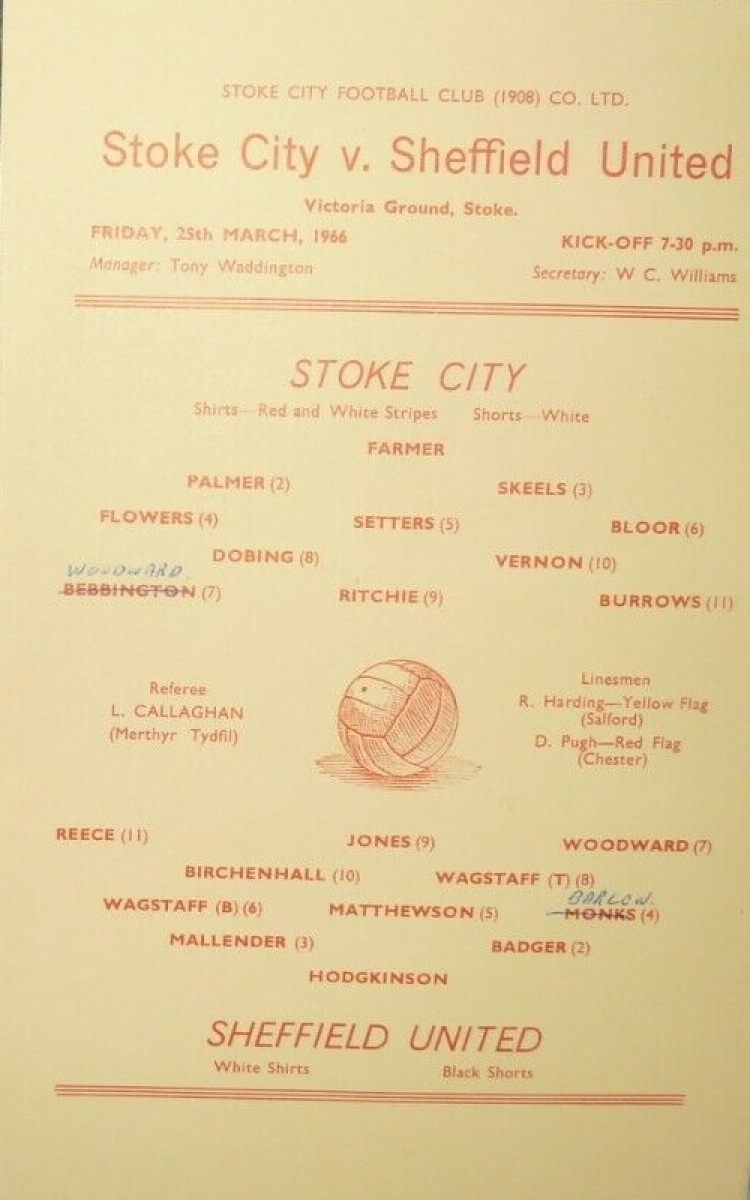 STOKE CITY FOOTBALL CLUB (1908) CO. LTD.
Stoke City v. Sheffield United
Victoria Ground, Stoke.
FRIDAY, 25th MARCH, 1966 KICK-OFF 7-30 p.m.
Manager: Tony Waddington Secretary: W C. Williams
STOKE CITY
Shirts—Red and White Stripes Shorts—White
FARMER
PALMER (2) SKEELS (3)
FLOWERS (4) SETTERS (5) BLOOR (6)
DOBING (8) VERNON (10)
WOODWARD
BEBBINGTON (7) RITCHIE (9) BURROWS (11)
Referee
L. CALLAGHAN
(Merthyr Tydfil)
Linesmen
R. Harding—Yellow Flag
(Salford)
D. Pugh—Red Flag
(Chester)
REECE (11) JONES (9) WOODWARD (7)
BIRCHENHALL (10) WAGSTAFF (T) (8)
BARLOW.
WAGSTAFF (B) (6) MATTHEWSON (5) MONKS (4)
MALLENDER (3) BADGER (2)
HODGKINSON
SHEFFIELD UNITED
White Shirts Black Shorts